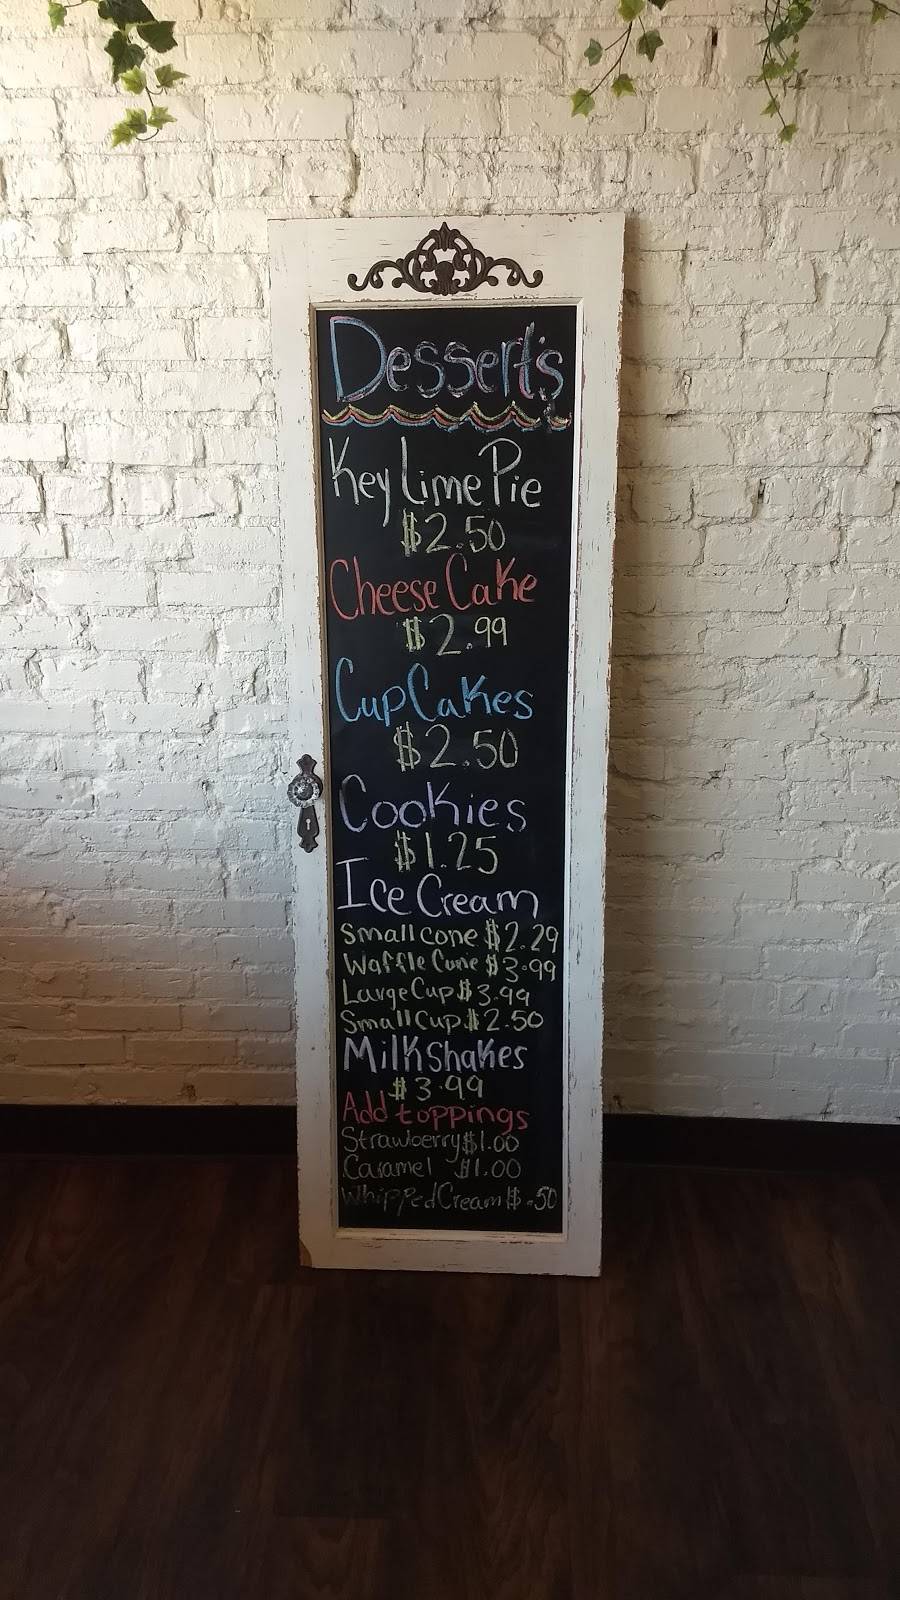 Dessert's
Key Lime Pie
$2.50
Cheese Cake
$2.99
CupCakes
$2.50
Cookies
$1.25
Ice Cream
Small cone $2.29
Waffle Cone $3.99
Large Cup $3.99
Small Cup $2.50
Milkshakes
$3.99
Add toppings
Strawberry $1.00
Caramel $1.00
Whipped Cream $.50